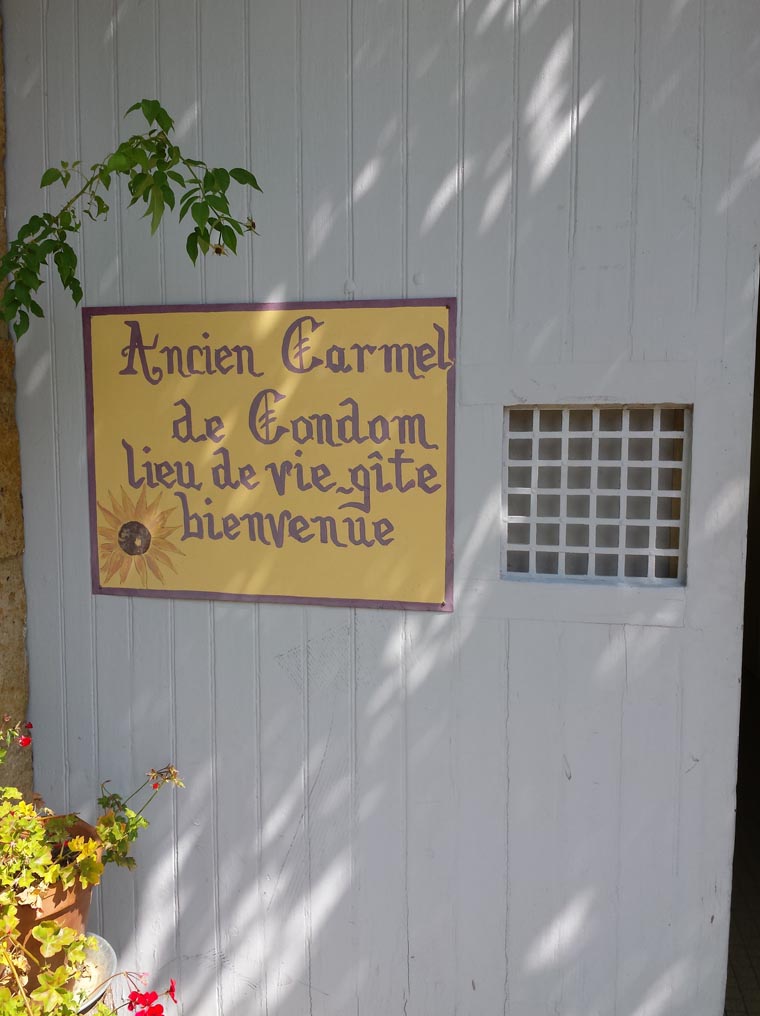 Ancien Carmel
de Condom
lieu de vie_gîte
bienvenue